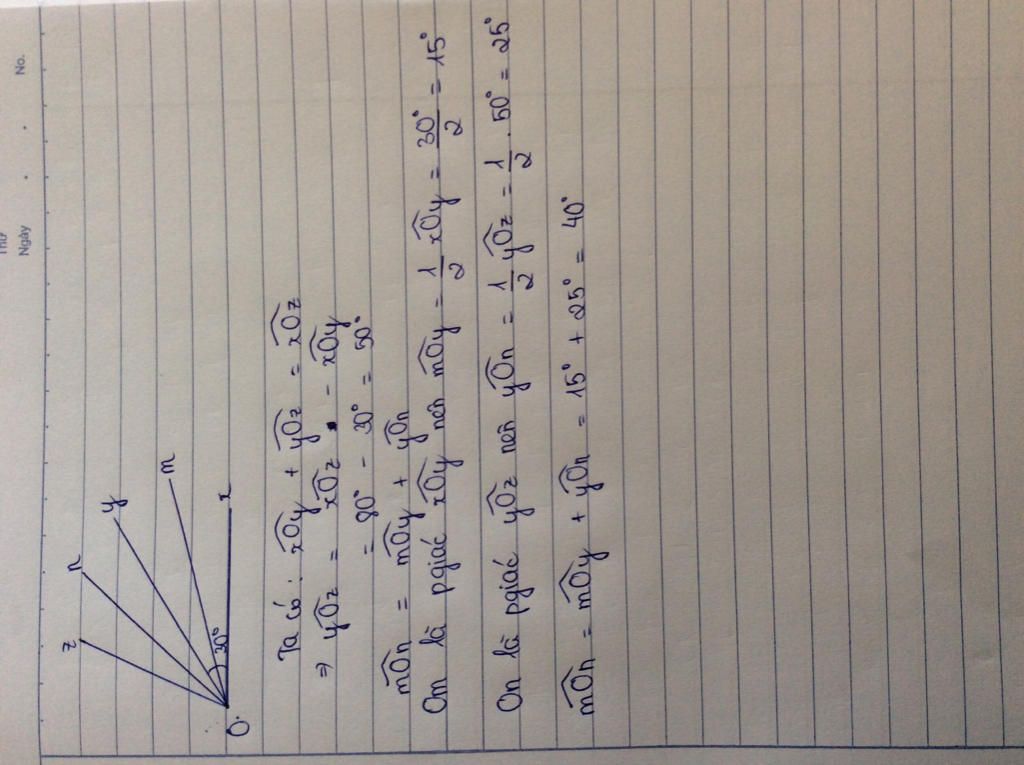 Thứ
Ngày . . No.
z
n
y
m
x
O.
30°
Ta có : xOy + yOz = xOz
⇒ yOz = xOz - xOy
= 80° - 30° = 50°
mOn = mOy + yOn
Om là pgiác xOy nên mOy = 1/2 xOy = 30°/2 = 15°
On là pgiác yOz nên yOn = 1/2 yOz = 1/2 . 50° = 25°
mOn = mOy + yOn = 15° + 25° = 40°